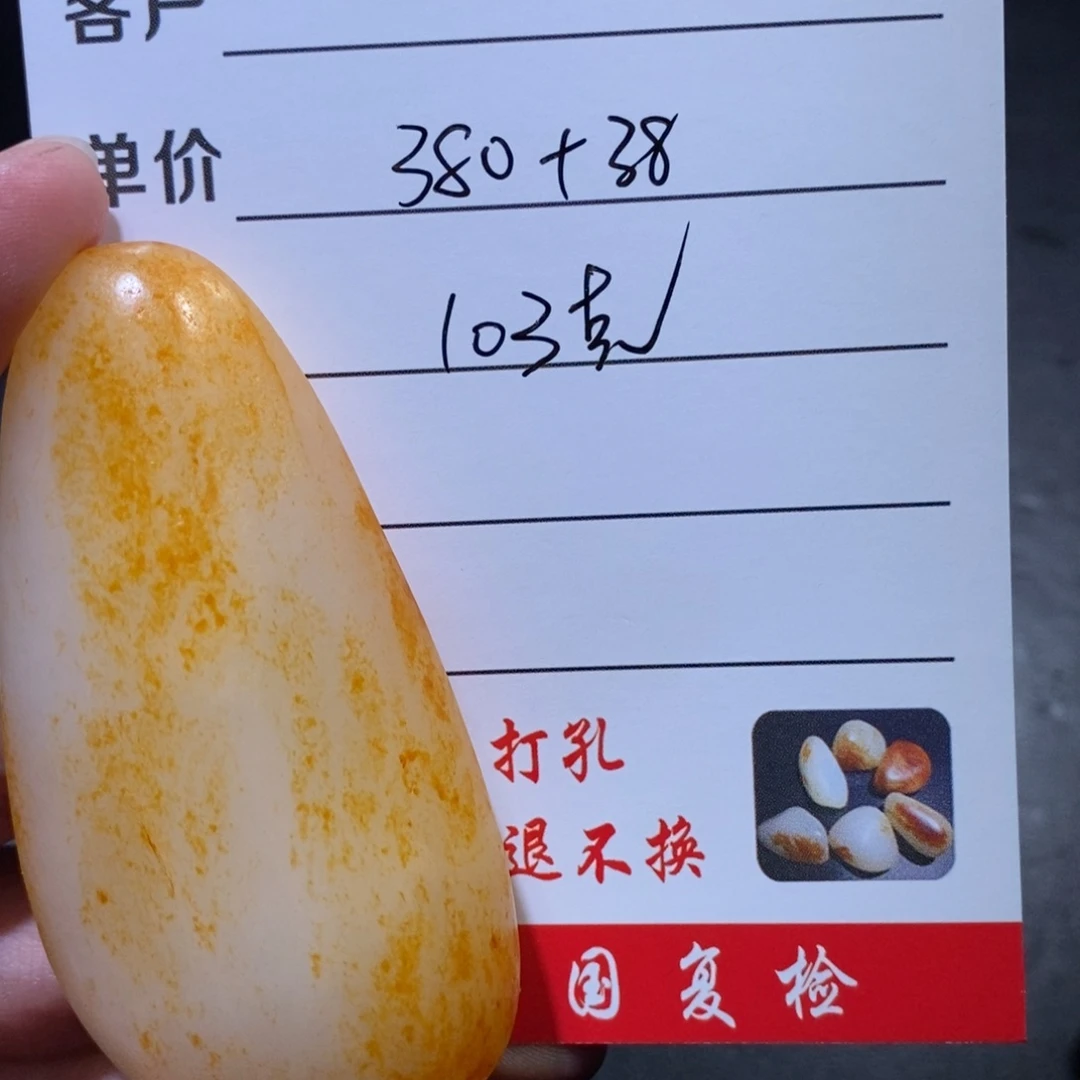 客户
单价 380+38
103克
打孔
退不换
国复检